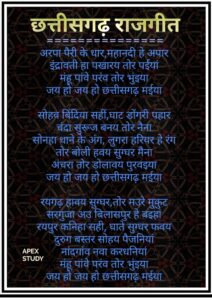 छत्तीसगढ़ राजगीत
अरपा पैरी के धार,महानदी हे अपार
इंद्रावती हा पखारय तोर पईयां
महूं पांवे परंव तोर भुंइया
जय हो जय हो छत्तीसगढ़ मईया
सोहय बिंदिया सहीं,घाट डोंगरी पहार
चंदा सुरूज बनय तोर नैना
सोनहा धाने के अंग, लुगरा हरियर हे रंग
तोर बोली हवय सुग्घर मैना
अंचरा तोर डोलावय पुरवईया
महूं पांवे परंव तोर भुंइया
जय हो जय हो छत्तीसगढ़ मईया
रयगढ़ हावय सुग्घर,तोर मउरे मुकुट
सरगुजा अउ बिलासपुर हे बइहां
रयपुर कनिहा सही, घाते सुग्घर फबय
दुरुग बस्तर सोहय पैजनियां
नांदगांव नवा करधनियां
महूं पांवे परंव तोर भुंइया
जय हो जय हो छत्तीसगढ़ मईया
APEX
STUDY